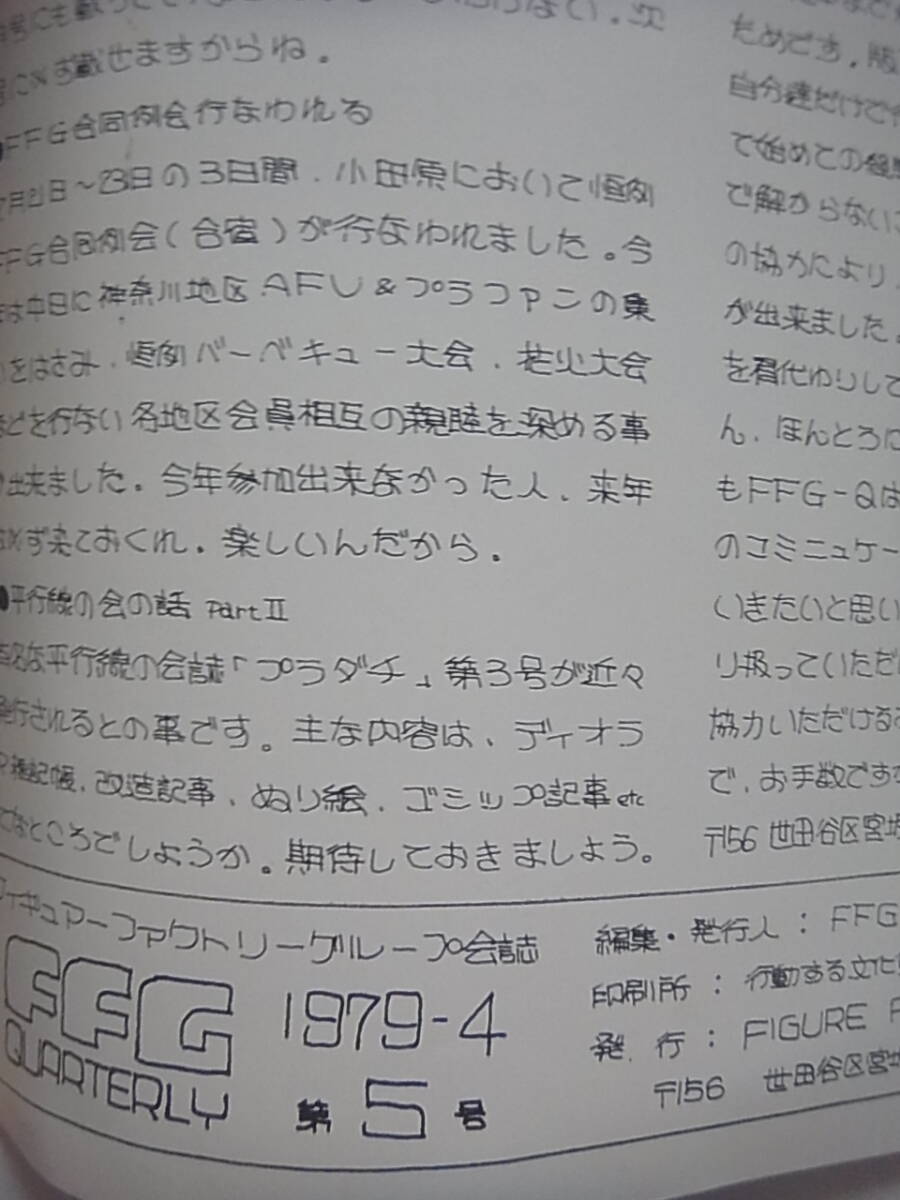 ず載せますからね。
FFG合同例会行なわれる
月21日～23日の3日間、小田原において恒例
FFG合同例会(合宿)が行なわれました。今
は中日に神奈川地区AFU&プラファンの集
をはさみ、恒例バーベキュー大会、花火大会
などを行ない各地区会員相互の親睦を深める事
出来ました。今年参加出来なかった人、来年
必ず来ておくれ。楽しいんだから。
●平行線の会の話 PartⅡ
平行線の会誌「プラダチ」第3号が近々
発行されるとの事です。主な内容は、ディオラ
雑記帳、改造記事、ぬり絵、ゴシップ記事etc
なところでしょうか。期待しておきましょう。
ためです。版
自分達だけで
で始めての経
で解からない
の協力により
が出来ました。
を着代わりして
ん、ほんとうに
もFFG-Qは
のコミニュケー
いきたいと思い
り扱っていただ
協力いただける
で、お手数です
〒156 世田谷区宮坂
フィギュアーファクトリーグループ会誌
FFG
QUARTERLY
1979-4
第5号
編集・発行人：FFG
印刷所：行動する文化
発行：FIGURE F
〒156 世田谷区宮坂